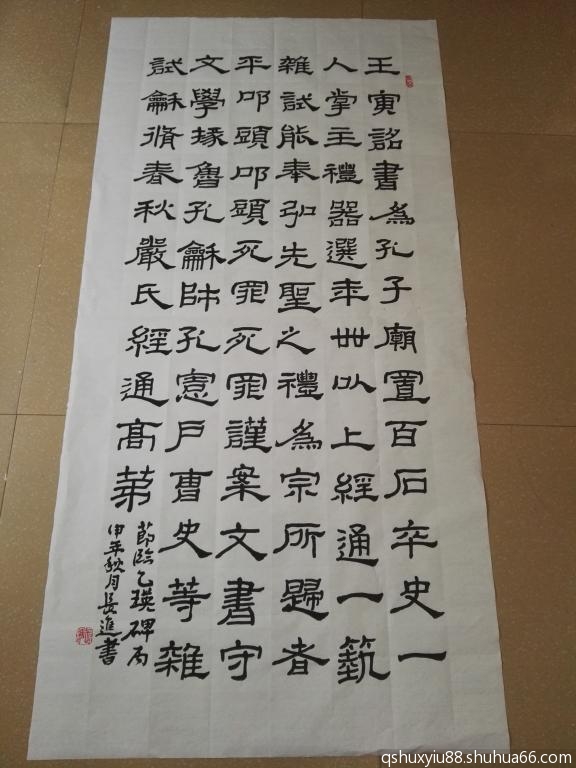 壬寅詔書為孔子廟置百石卒史一
人掌主禮器選年卌以上經通一藝
雜試能奉弘先聖之禮為宗所歸者
平叩頭叩頭死罪死罪謹案文書守
文學掾魯孔龢師孔憲戶曹史等雜
試龢脩春秋嚴氏經通高第
節臨乙瑛碑丙
申年秋月長進書
qshuxyiu88.shuhua66.com